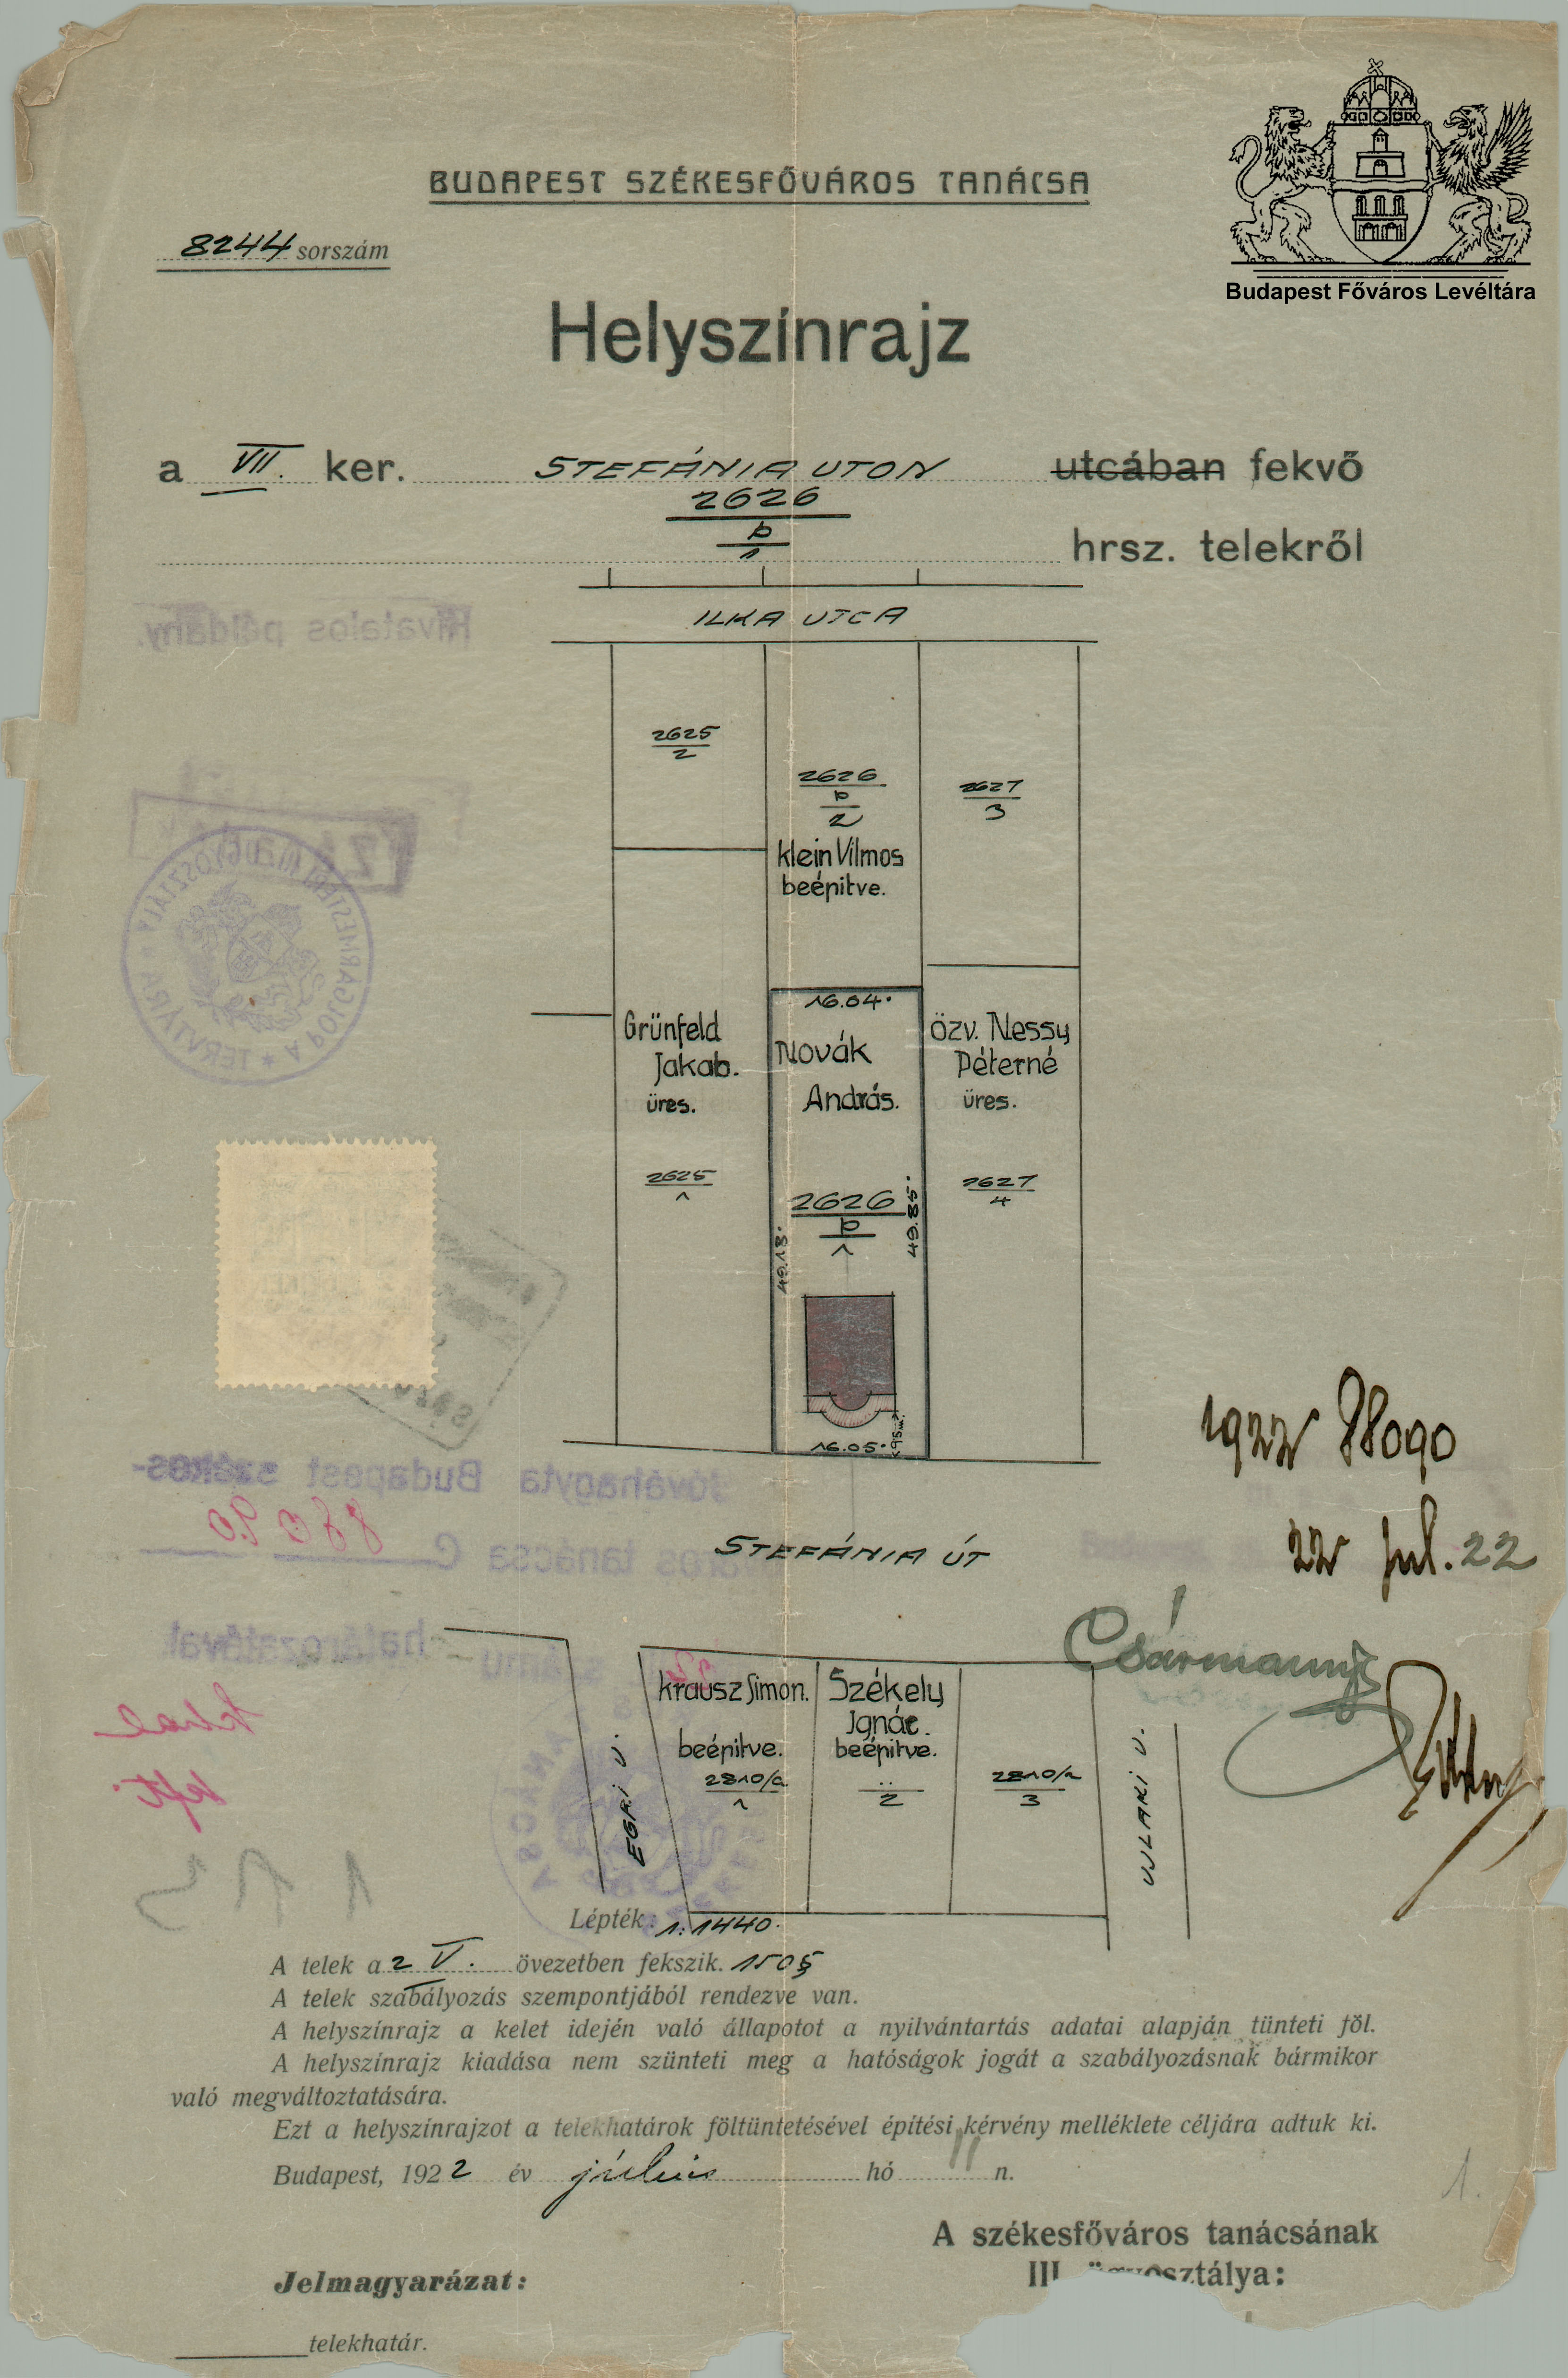 BUDAPEST SZÉKESFŐVÁROS TANÁCSA
Budapest Főváros Levéltára
8244 sorszám
Helyszínrajz
a VII. ker. STEFÁNIA UTON utcában fekvő
2626
b
1
hrsz. telekről
ILKA UTCA
Hivatalos példány.
2625
2
2626
b
2
2627
3
Klein Vilmos
beépitve.
16.04
Grünfeld
Jakab.
üres.
Novák
András.
özv. Nessy
Péterné
üres.
2625
1
2626
b
1
2627
4
49.18
49.85
16.05
1922 88090
Jóváhagyta Budapest székes-
88090
tanácsa
határozatával
STEFÁNIA ÚT
22 jul. 22
Krausz Simon.
beépitve.
2810/a
1
Székely
Ignác.
beépitve.
2
2810/a
3
EGRI U.
UJLAKI U.
Lépték: 1:1440.
A telek a 2 V. övezetben fekszik. 150§
A telek szabályozás szempontjából rendezve van.
A helyszínrajz a kelet idején való állapotot a nyilvántartás adatai alapján tünteti föl.
A helyszínrajz kiadása nem szünteti meg a hatóságok jogát a szabályozásnak bármikor
való megváltoztatására.
Ezt a helyszínrajzot a telekhatárok föltüntetésével építési kérvény melléklete céljára adtuk ki.
Budapest, 1922 év július hó 11 n.
1.
A székesfőváros tanácsának
III. ügyosztálya:
Jelmagyarázat:
telekhatár.